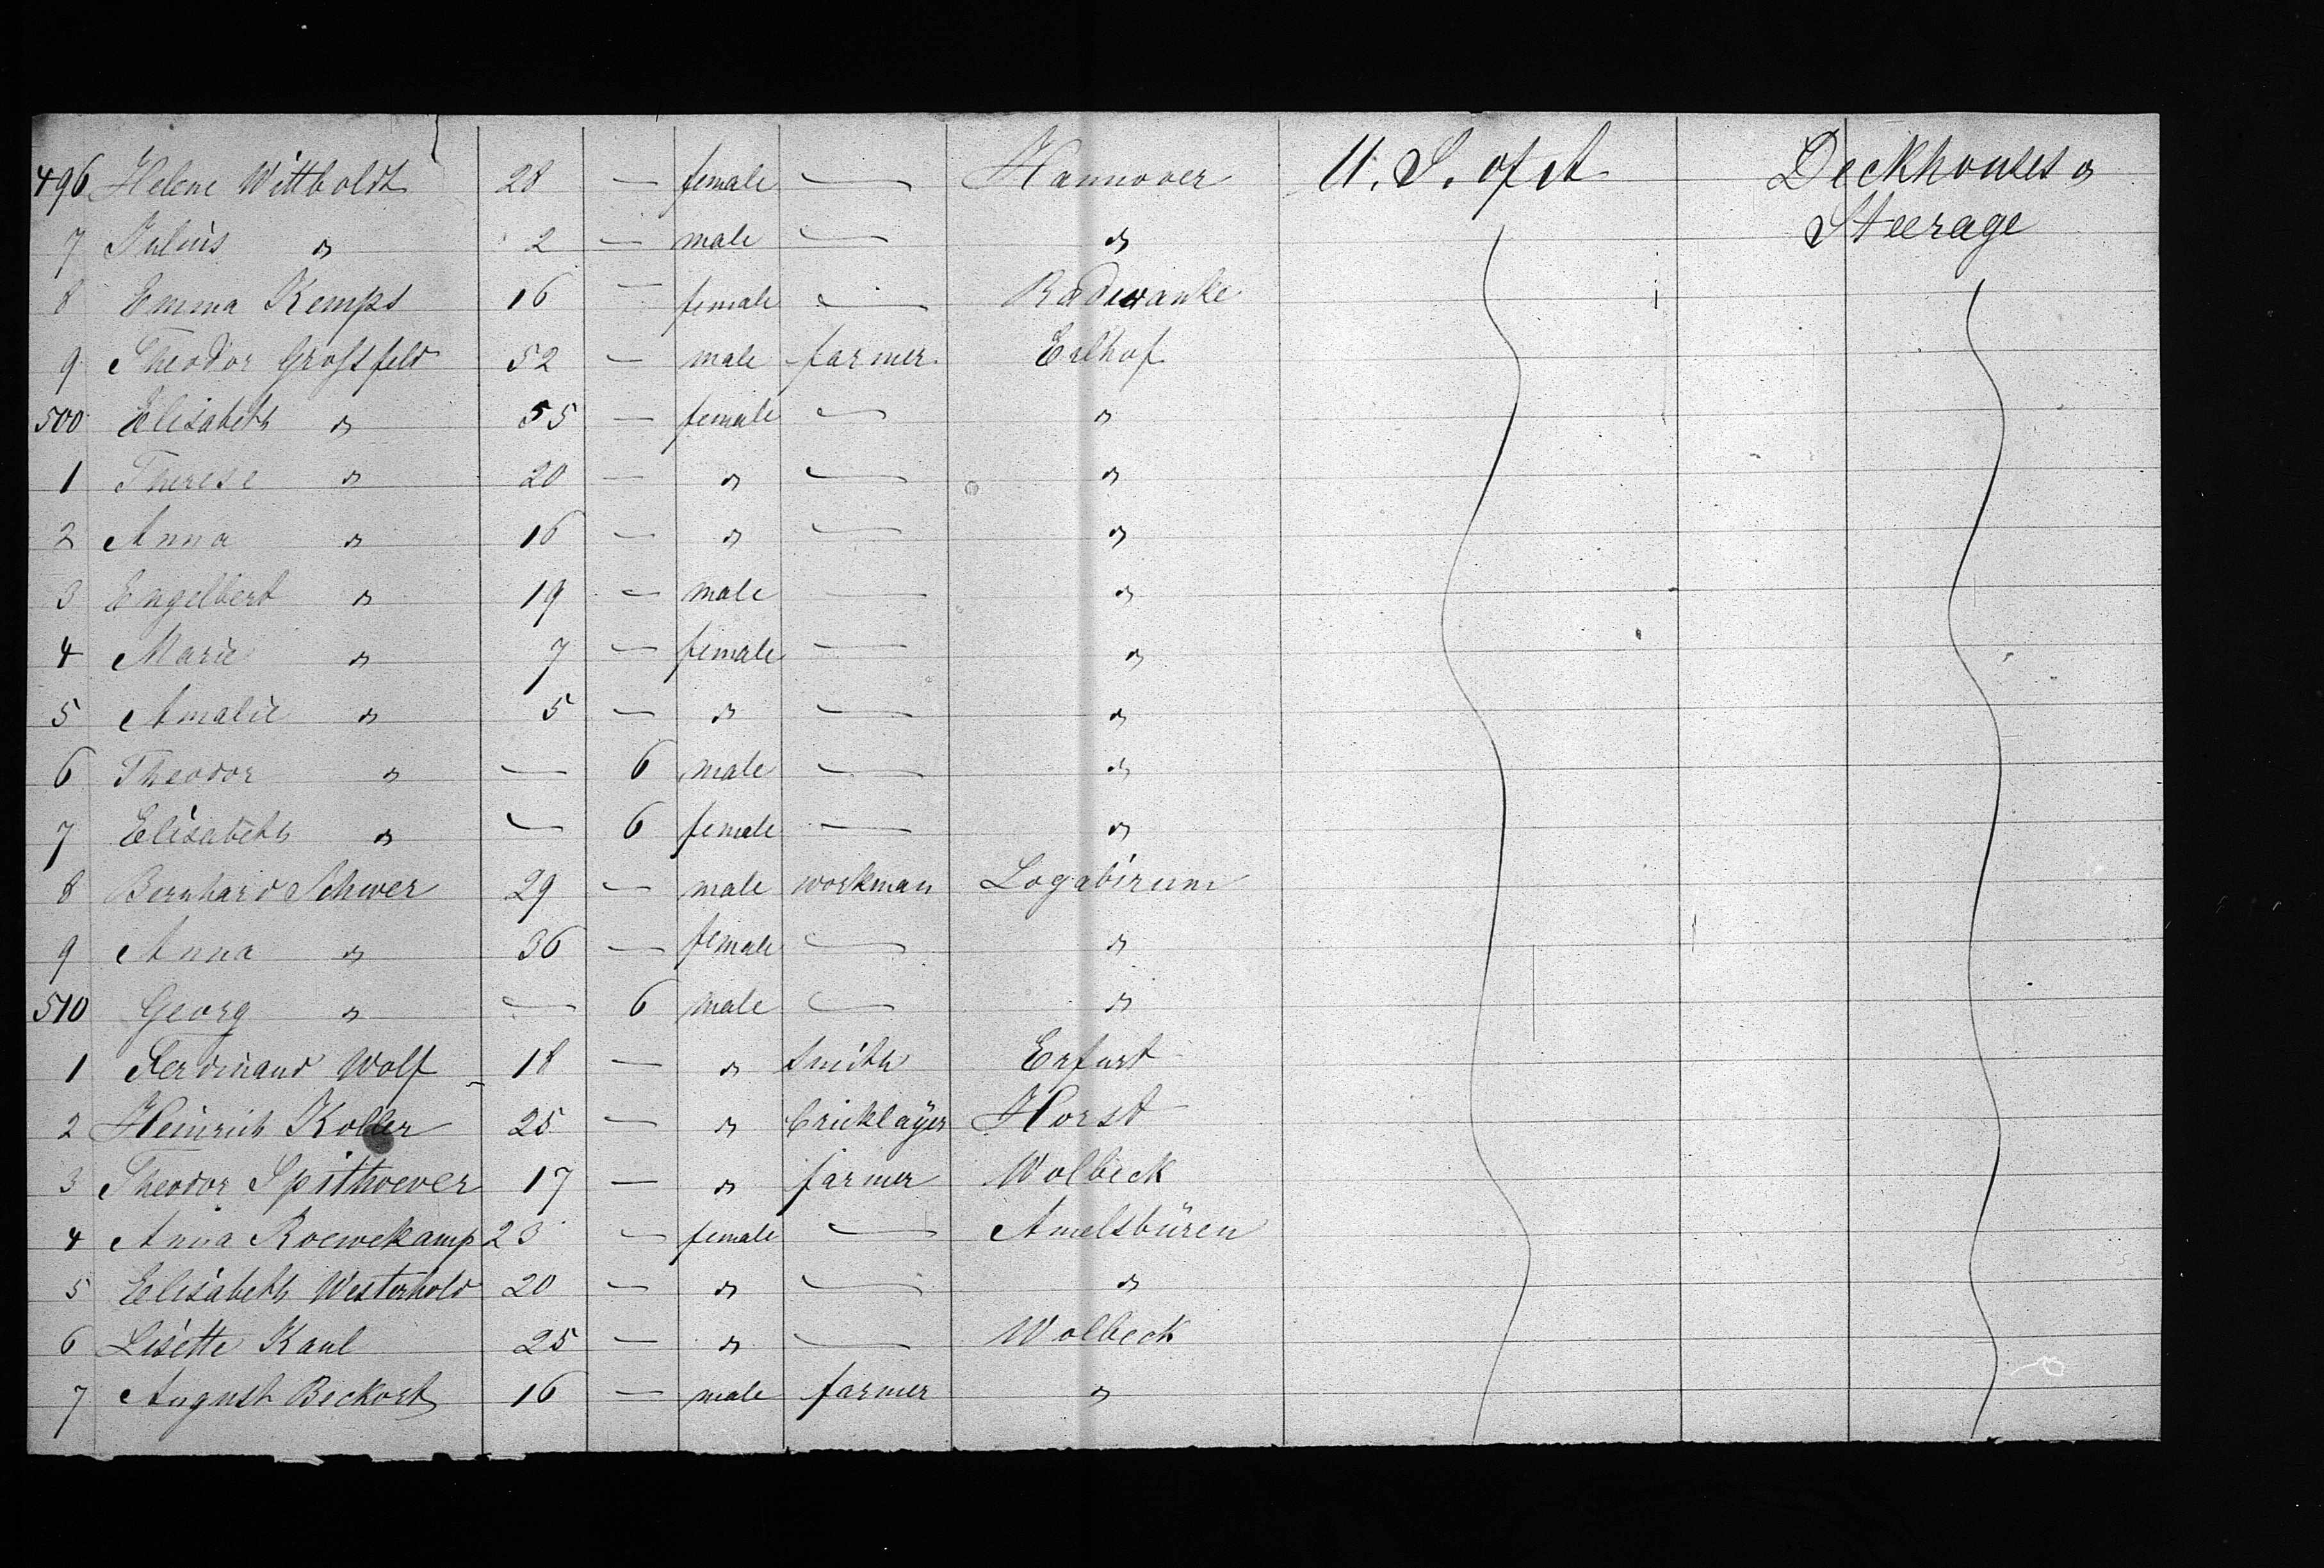 496 Helene Wittboldt 28 — female — Hannover U. S. of A Deckhouses &
7 Julius " 2 — male — " Steerage
8 Emma Kemps 16 — female — Radewanke
9 Theodor Grossfeld 52 — male farmer Ealhof
500 Elisabeth " 55 — female — "
1 Therese " 20 — " — "
2 Anna " 16 — " — "
3 Engelbert " 19 — male — "
4 Marie " 7 — female — "
5 Amalie " 5 — " — "
6 Theodor " — 6 male — "
7 Elisabeth " — 6 female — "
8 Bernhard Schwer 29 — male workman Logabirum
9 Anna " 36 — female — "
510 Georg " — 6 male — "
1 Ferdinand Wolf 18 — " smith Erfurt
2 Heinrich Koller 25 — " bricklayer Horst
3 Theodor Spithoever 17 — " farmer Wolbeck
4 Anna Roewekamp 23 — female — Amelsbüren
5 Elisabeth Westerhold 20 — " — "
6 Lisette Kaul 25 — " — Wolbeck
7 August Beckort 16 — male farmer "